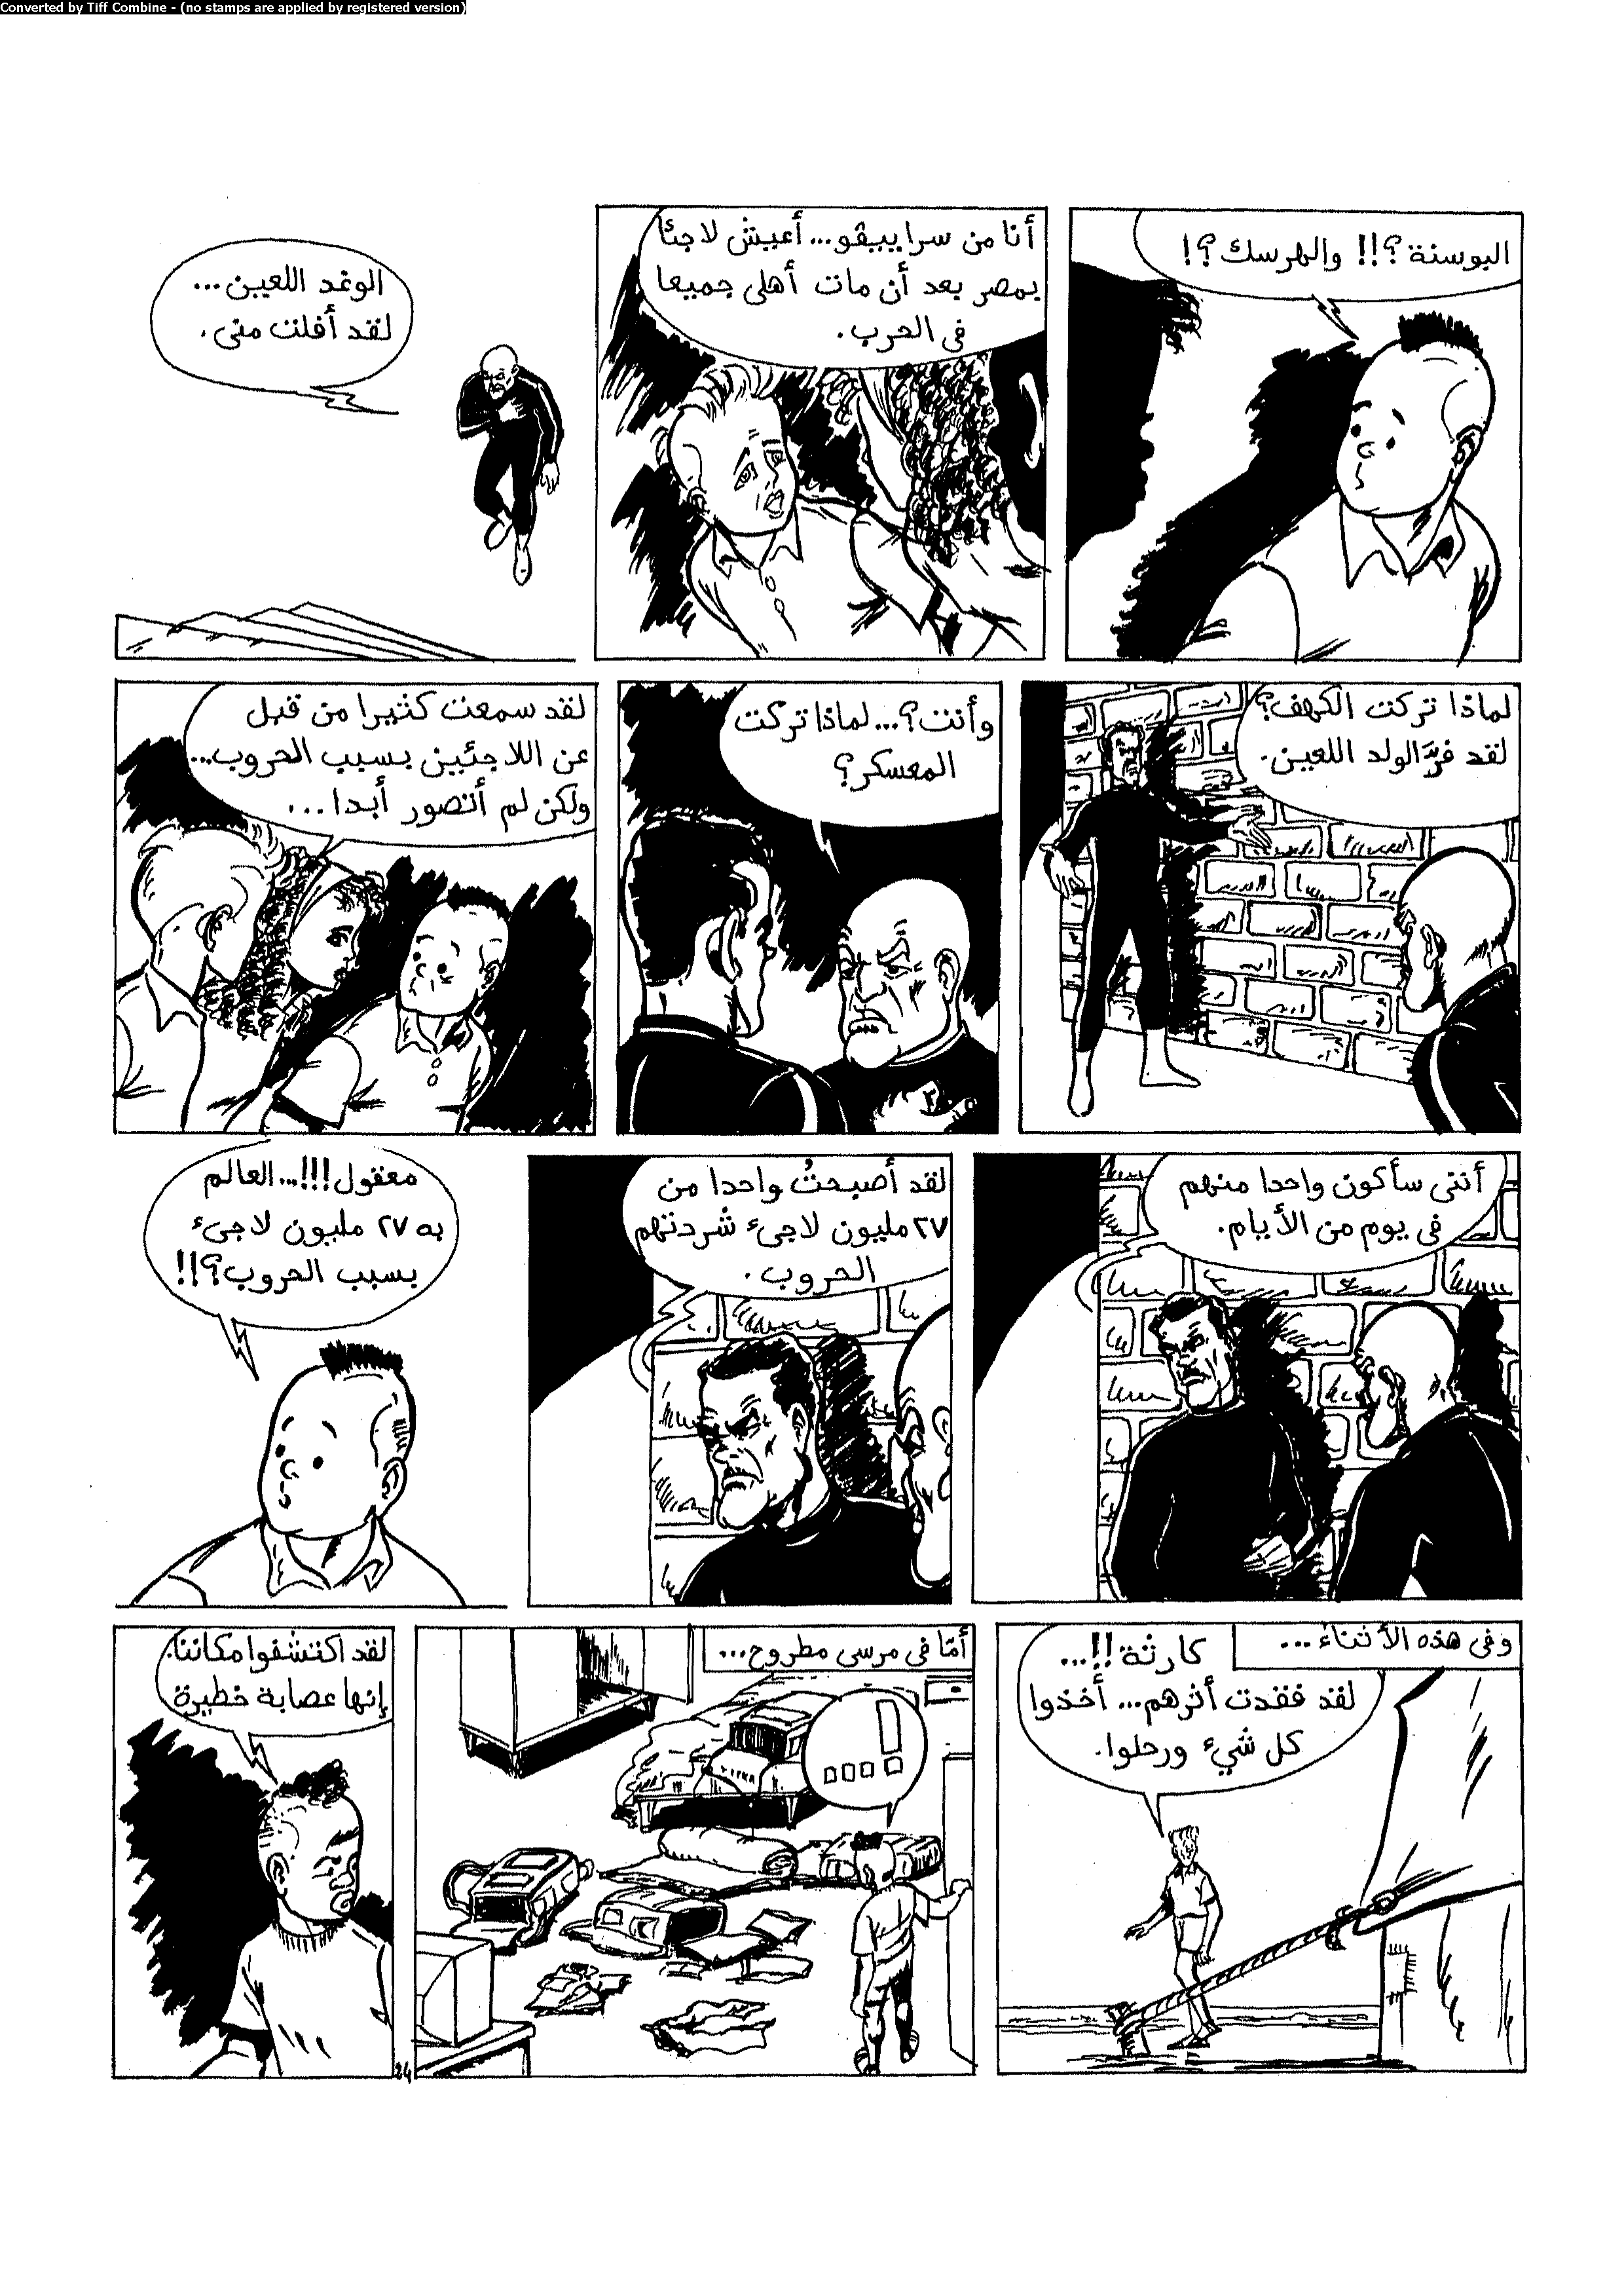 Converted by Tiff Combine - (no stamps are applied by registered version)
البوسنة؟!! والهرسك؟!
أنا من سراييڤو... أعيش لاجئا
بمصر بعد أن مات أهلى جميعا
فى الحرب.
الوغد اللعين...
لقد أفلت منى.
لماذا تركت الكهف؟
لقد فرَّ الولد اللعين.
وأنت؟... لماذا تركت
المعسكر؟
لقد سمعت كثيرا من قبل
عن اللاجئين بسبب الحروب...
ولكن لم أتصور أبدا...
أننى سأكون واحدا منهم
فى يوم من الأيام.
لقد أصبحتُ واحدا من
٢٧ مليون لاجىء شردتهم
الحروب.
معقول!!!... العالم
به ٢٧ مليون لاجىء
بسبب الحروب؟!!
وفى هذه الأثناء...
كارثة!!...
لقد فقدت أثرهم... أخذوا
كل شيء ورحلوا.
أمّا فى مرسى مطروح...
!
لقد اكتشفوا مكاننا.
إنها عصابة خطيرة
24